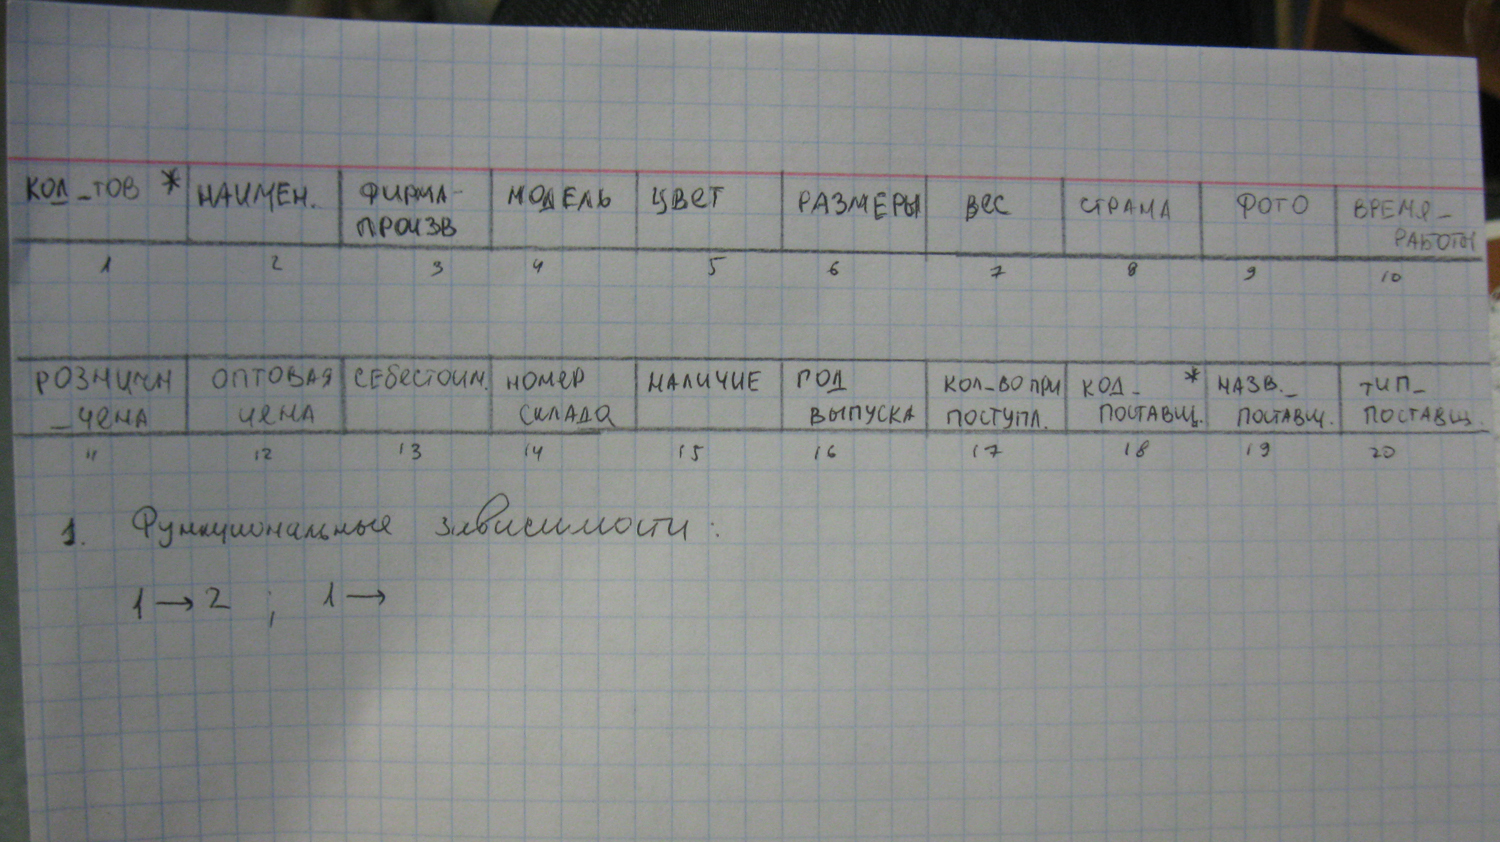 КОД_ТОВ * НАИМЕН. ФИРМА- МОДЕЛЬ ЦВЕТ РАЗМЕРЫ ВЕС СТРАНА ФОТО ВРЕМЯ_
ПРОИЗВ РАБОТЫ
1 2 3 4 5 6 7 8 9 10
РОЗНИЧН ОПТОВАЯ СЕБЕСТОИМ. НОМЕР НАЛИЧИЕ ГОД КОЛ-ВО ПРИ КОД_ * НАЗВ._ ТИП_
_ЦЕНА ЦЕНА СКЛАДА ВЫПУСКА ПОСТУПЛ. ПОСТАВЩ. ПОСТАВЩ. ПОСТАВЩ.
11 12 13 14 15 16 17 18 19 20
1. Функциональные зависимости:
1→2 ; 1→